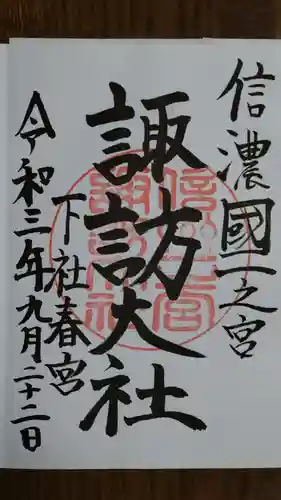 信濃國一之宮
諏訪大社
下社春宮
令和三年九月二十二日